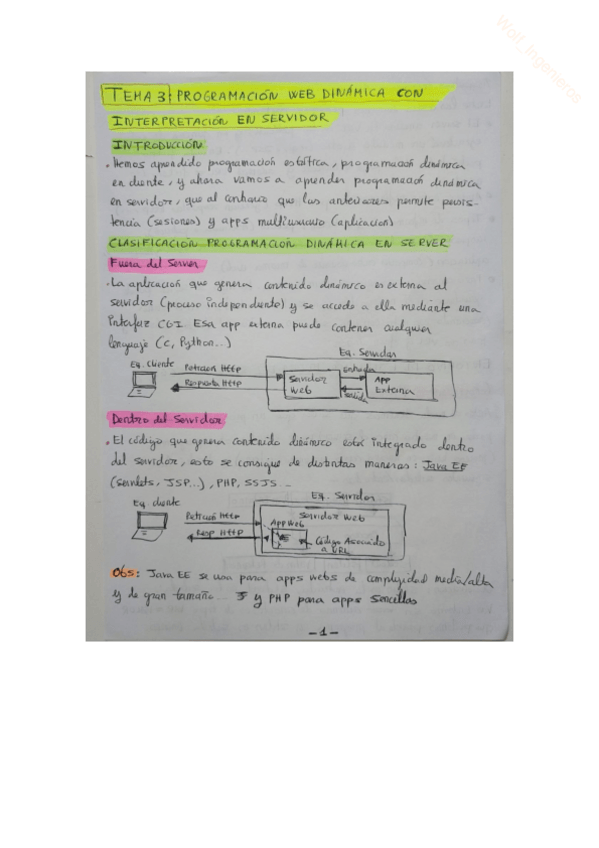 Wolf_Ingenieros
TEMA 3: PROGRAMACIÓN WEB DINÁMICA CON
INTERPRETACIÓN EN SERVIDOR
INTRODUCCIÓN
. Hemos aprendido programación estática, programación dinámica
en cliente, y ahora vamos a aprender programación dinámica
en servidor, que al contrario que las anteriores permite persis-
tencia (sesiones) y apps multiusuario (aplicacion)
CLASIFICACIÓN PROGRAMACIÓN DINÁMICA EN SERVER
Fuera del Server
. La aplicación que genera contenido dinámico es externa al
servidor (proceso independiente) y se accede a ella mediante una
interfaz CGI. Esa app externa puede contener cualquier
lenguaje (C, Python...)
Eq. Cliente
Petición Http
Respuesta Http
Eq. Servidor
Servidor
Web
entrada
salida
App
Externa
Dentro del Servidor
. El código que genera contenido dinámico está integrado dentro
del servidor, esto se consigue de distintas maneras: Java EE
(servlets, JSP...), PHP, SSJS...
Eq. cliente
Petición Http
Resp Http
Eq. Servidor
Servidor Web
App Web
Código Asociado
a URL
Obs: Java EE se usa para apps webs de complejidad media/alta
y de gran tamaño... y PHP para apps sencillas
-1-